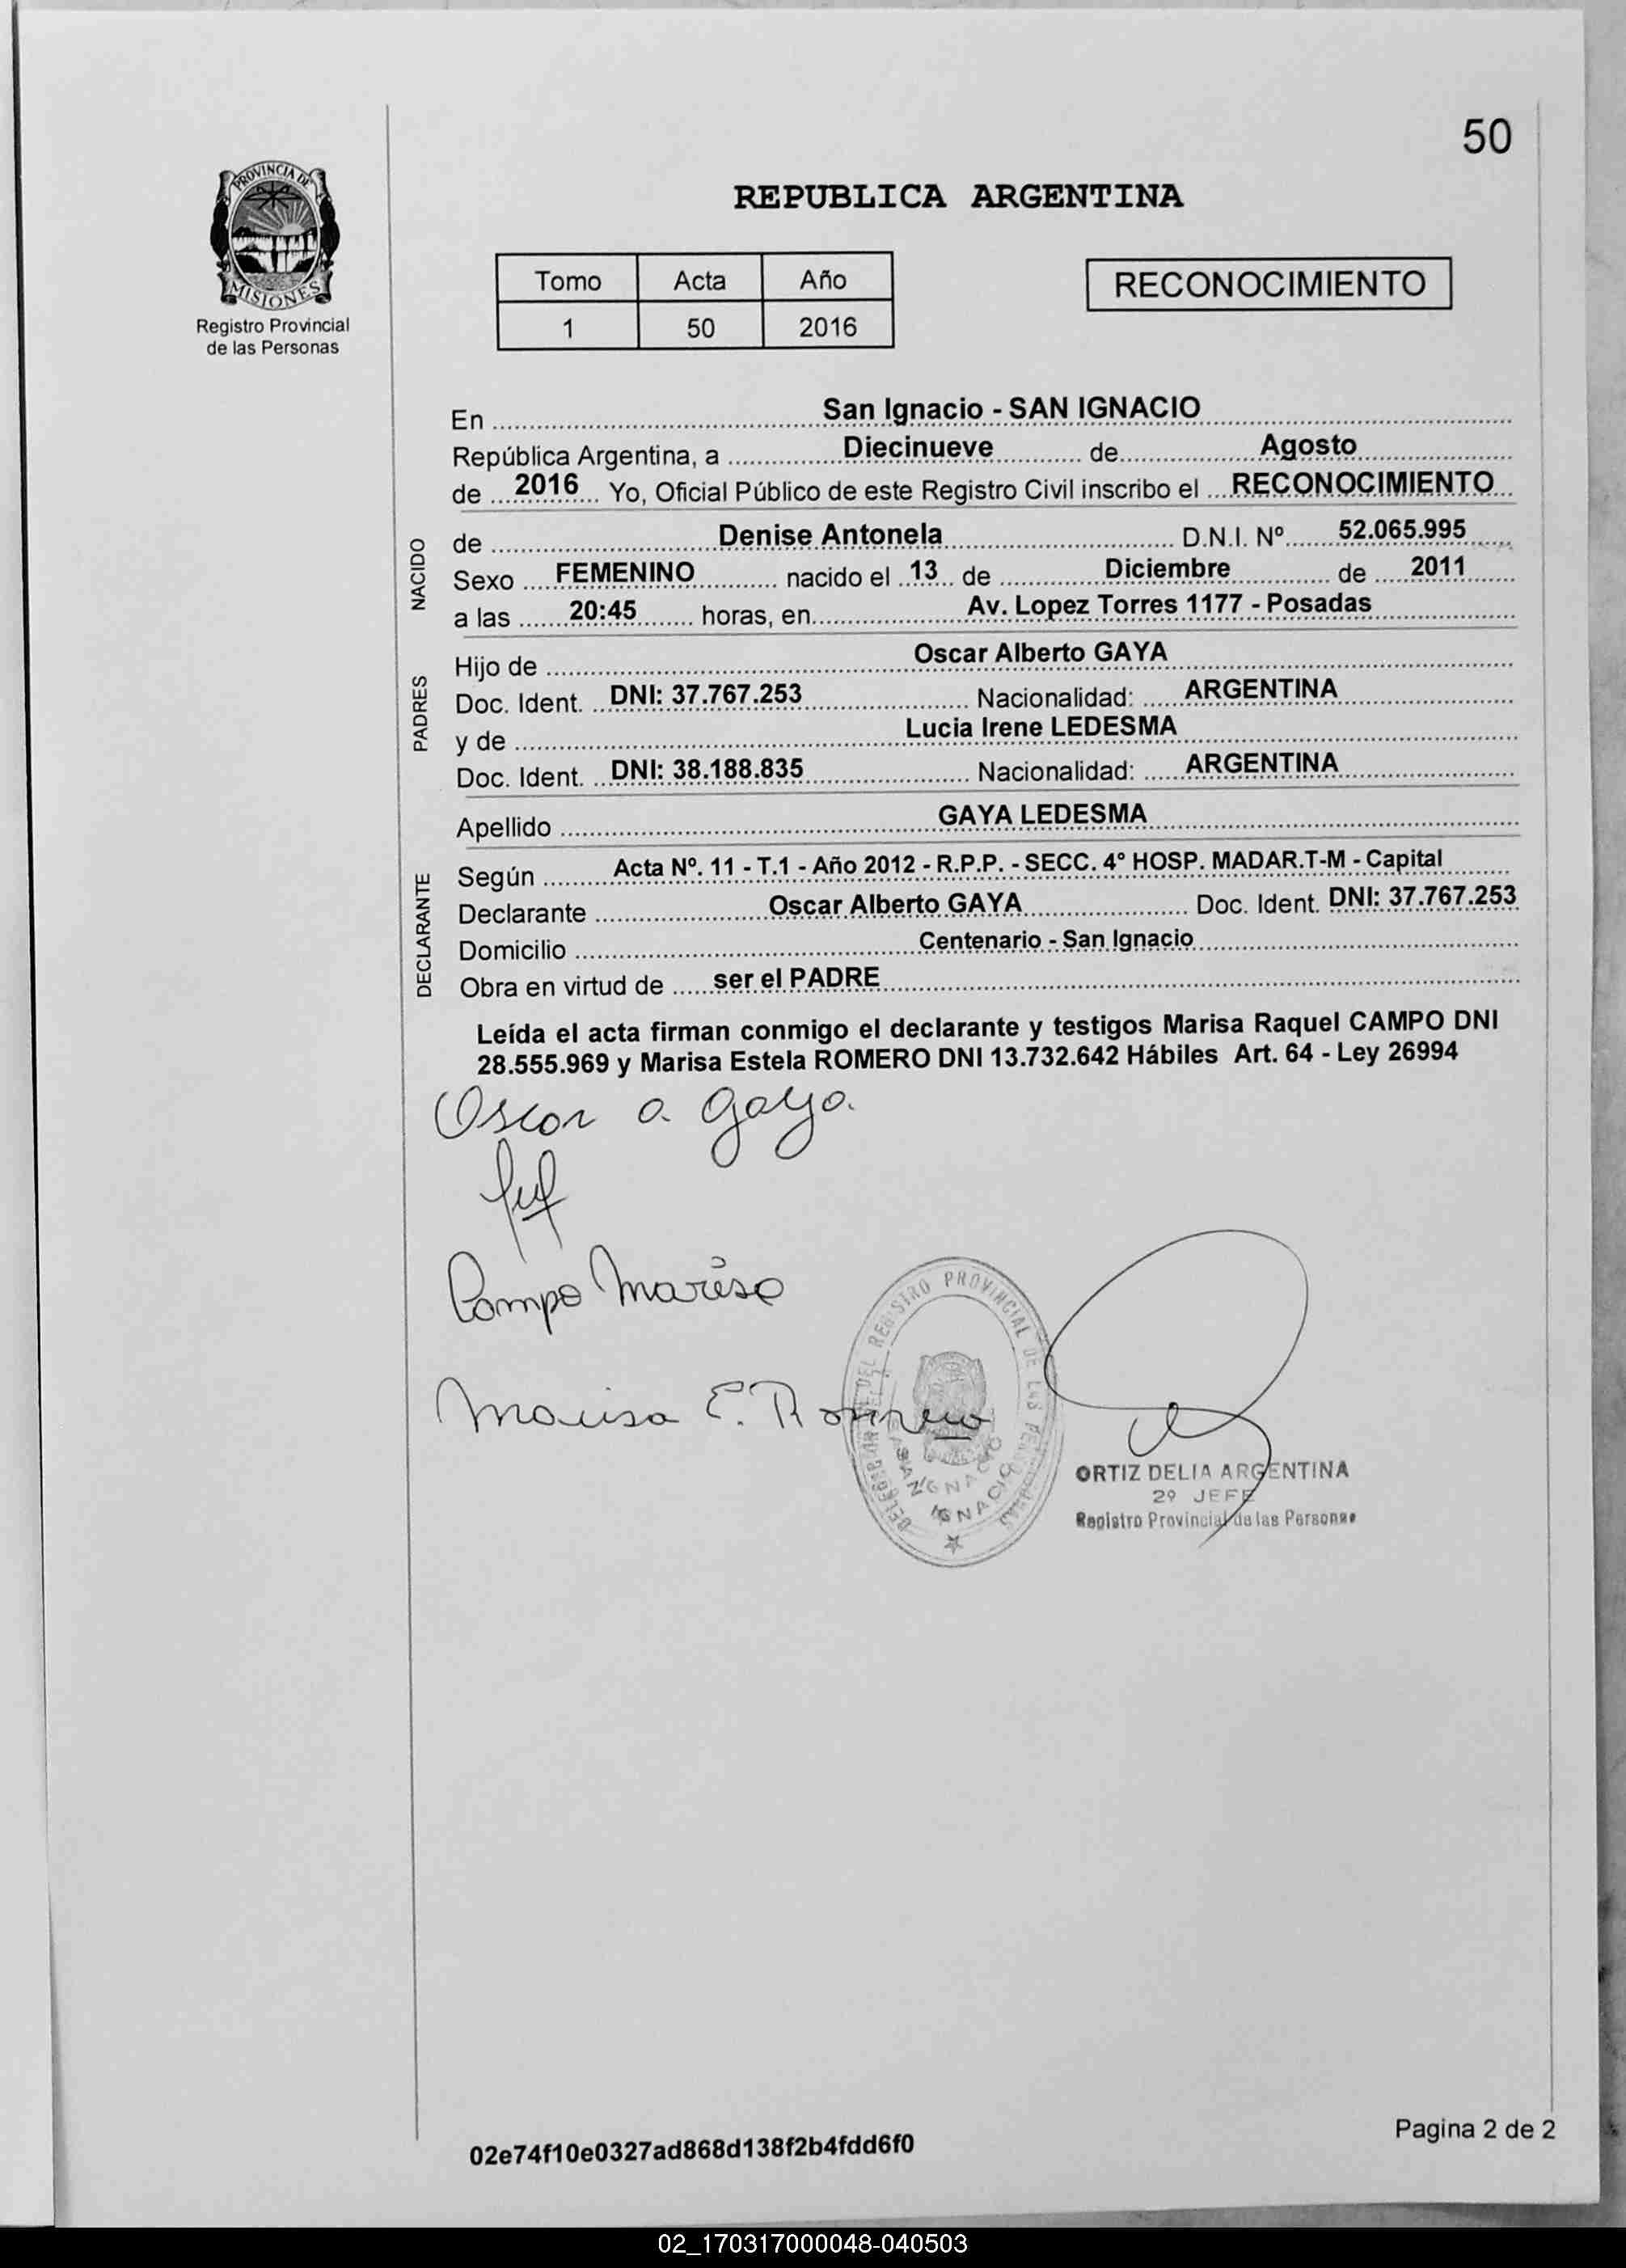 50
PROVINCIA DE
MISIONES
Registro Provincial
de las Personas
REPUBLICA ARGENTINA
Tomo Acta Año
1 50 2016
RECONOCIMIENTO
En San Ignacio - SAN IGNACIO
República Argentina, a Diecinueve de Agosto
de 2016 Yo, Oficial Público de este Registro Civil inscribo el RECONOCIMIENTO
NACIDO
de Denise Antonela D.N.I. Nº 52.065.995
Sexo FEMENINO nacido el 13 de Diciembre de 2011
a las 20:45 horas, en Av. Lopez Torres 1177 - Posadas
PADRES
Hijo de Oscar Alberto GAYA
Doc. Ident. DNI: 37.767.253 Nacionalidad: ARGENTINA
y de Lucia Irene LEDESMA
Doc. Ident. DNI: 38.188.835 Nacionalidad: ARGENTINA
Apellido GAYA LEDESMA
DECLARANTE
Según Acta Nº. 11 - T.1 - Año 2012 - R.P.P. - SECC. 4° HOSP. MADAR.T-M - Capital
Declarante Oscar Alberto GAYA Doc. Ident. DNI: 37.767.253
Domicilio Centenario - San Ignacio
Obra en virtud de ser el PADRE
Leída el acta firman conmigo el declarante y testigos Marisa Raquel CAMPO DNI
28.555.969 y Marisa Estela ROMERO DNI 13.732.642 Hábiles Art. 64 - Ley 26994
Oscar a gaya
Campo Marisa
Marisa E. Romero
DEL REGISTRO PROVINCIAL DE LAS PERSONAS
SAN IGNACIO
ORTIZ DELIA ARGENTINA
2º JEFE
Registro Provincial de las Personas
02e74f10e0327ad868d138f2b4fdd6f0
Pagina 2 de 2
02_170317000048-040503